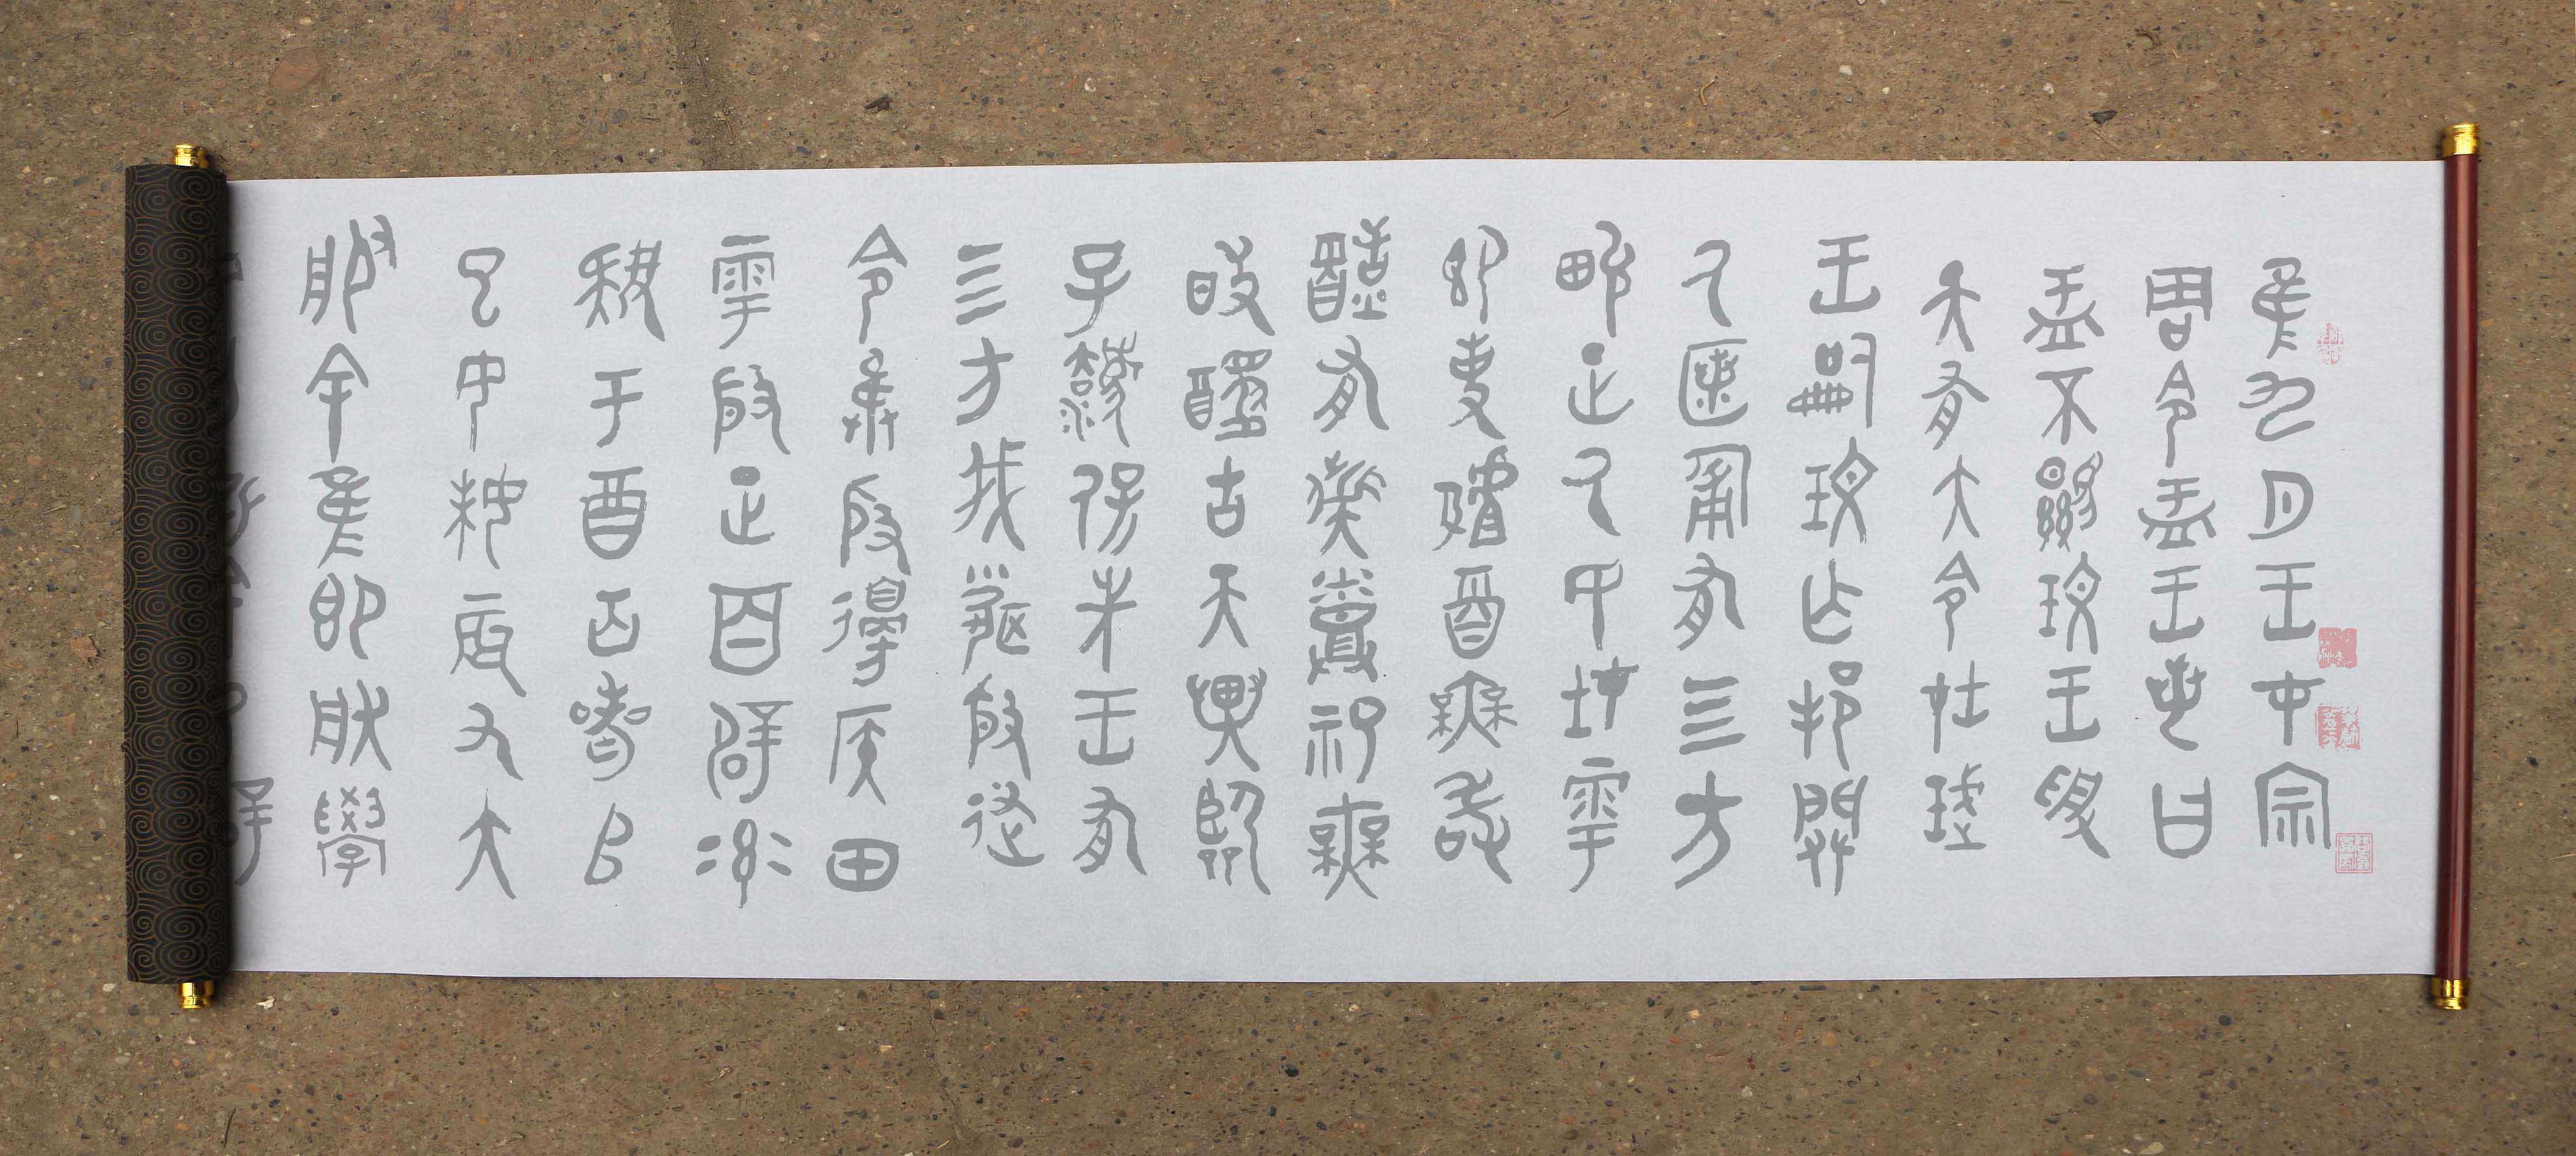 隹九月王才宗
周令盂王若曰
盂不顯玟王受
天有大令在珷
王嗣玟乍邦闢
厥匿匍有四方
畯正厥民在雩
御事酒無敢
酖有祡烝祀無
敢醻古天異臨
子灋保先王有
四方我聞殷述
令隹殷邊侯田
雩殷正百辟率
肄于酒古喪師
已女妹辰又大
服余隹即朕小學